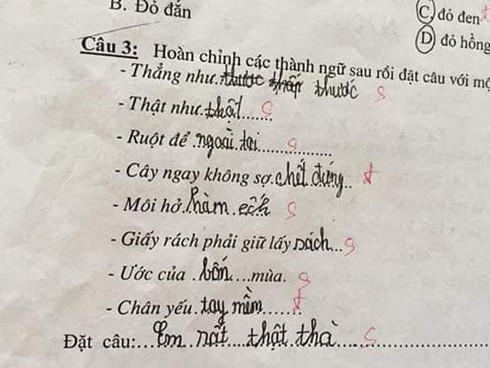 B. Đỏ đắn
C. đỏ đen
D đỏ hồng
Câu 3: Hoàn chỉnh các thành ngữ sau rồi đặt câu với mộ
- Thẳng như thước thấp thước s
- Thật như thật....... s
- Ruột để ngoài tai.............. s
- Cây ngay không sợ chết đứng.. đ
- Môi hở hàm ếch s
- Giấy rách phải giữ lấy sách... s
- Ước của bốn....mùa. s
- Chân yếu tay mềm....... đ
Đặt câu:....Em rất....thật thà..... s